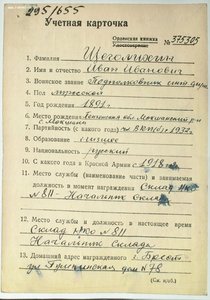 295/1655
Учетная карточка
Орденская книжка № 375305
Удостоверение
1. Фамилия Щеголихин
2. Имя и отчество Иван Иванович
3. Воинское звание Подполковник инт. сл.
4. Пол мужской
5. Год рождения 1891 г.
6. Место рождения Пензенская обл. Мокшанский р-н
с. Мокшан
7. Партийность (с какого года) чл. ВКП(б) 1932 г.
8. Образование
9. Национальность русский
10. С какого года в Красной Армии с 1918 года
11. Место службы (наименование части) и занимаемая
должность в момент награждения Склад НКО
№ 811 Начальник склада
12. Место службы и должность в настоящее время
Склад НКО № 811
Начальник склада
13. Домашний адрес награжденного г. Брест
ул. Пушкинская дом № 78
(См. н/об.)